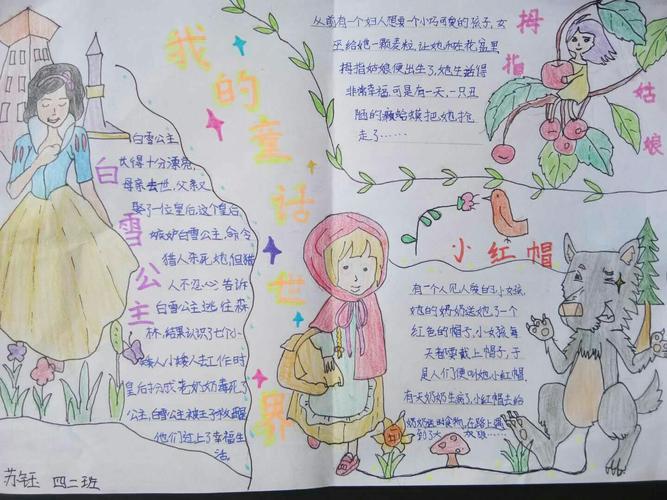 我的童话世界
白雪公主
白雪公主
长得十分漂亮,
母亲去世,父亲又
娶了一位皇后,这个皇后
嫉妒白雪公主,命令
猎人杀死她,但猎
人不忍心告诉
白雪公主逃往森
林,结果认识了七个小
矮人,小矮人去工作时
皇后扮成老奶奶毒死了
公主,白雪公主被王子救醒
他们过上了幸福生
活。
苏钰 四二班
拇指姑娘
从前有一个妇人想要一个小巧可爱的孩子,女
巫给她一颗麦粒,让她种在花盆里
拇指姑娘便出生了,她生活得
非常幸福,可是有一天,一只丑
陋的癞蛤蟆把她抢
走了……
小红帽
有一个人见人爱的小女孩,
她的奶奶送她了一个
红色的帽子,小女孩每
天都要戴上帽子,于
是人们便叫她小红帽
有天奶奶生病了,小红帽去给
奶奶送食物,在路上遇
到了大灰狼……